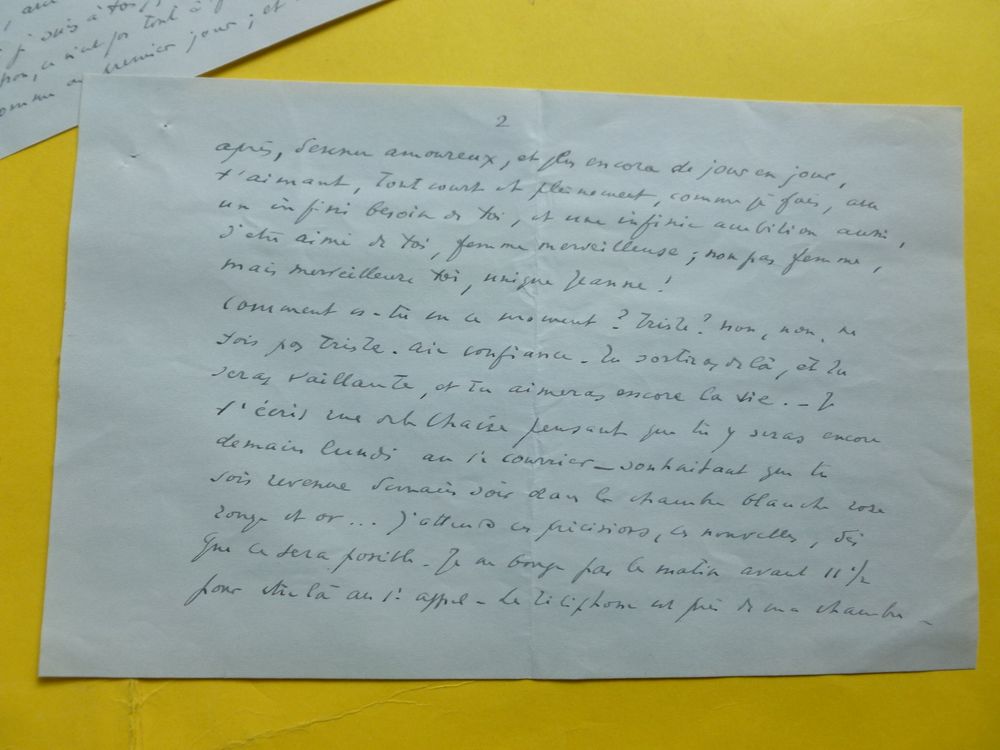 à toi,
pas tout à
comme au premier jour ; et
2
après, amoureux, et plus encore de jour en jour,
t'aimant, tout court et pleinement, comme je fais, avec
un infini besoin de toi, et une infinie ambition aussi,
d'être aimé de toi, femme merveilleuse ; non pas femme,
mais merveilleuse toi, unique Jeanne !
Comment es-tu en ce moment ? Triste ? non, non, ne
sois pas triste. Aie confiance - Tu sortiras de là, et tu
seras vaillante, et tu aimeras encore la vie. - Je
t'écris rue de la Chaise pensant que tu y seras encore
demain lundi au 1er courrier - souhaitant que tu
sois revenue demain soir dans la chambre blanche rose
rouge et or ... J'attends ces précisions, ces nouvelles, dès
que ce sera possible - Je ne bouge pas le matin avant 11 1/2
pour être là au 1er appel - Le téléphone est près de ma chambre -